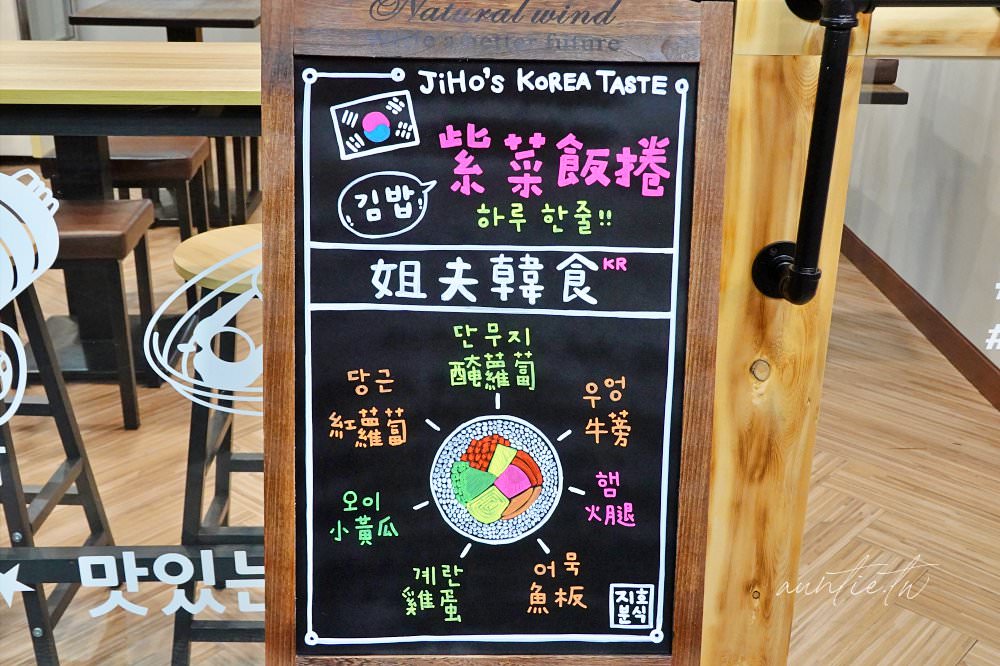 Natural wind
better future
JiHo's KOREA TASTE
紫菜飯捲
김밥
하루 한줄!!
姐夫韓食 KR
단무지
醃蘿蔔
당근
紅蘿蔔
우엉
牛蒡
오이
小黃瓜
햄
火腿
계란
雞蛋
어묵
魚板
지호
분식
맛있는
auntie.tw
#